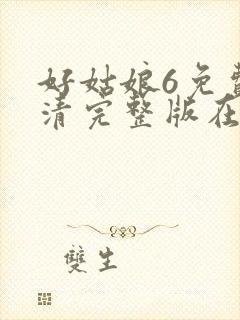 好姑娘6免费
清完整版在
雙生